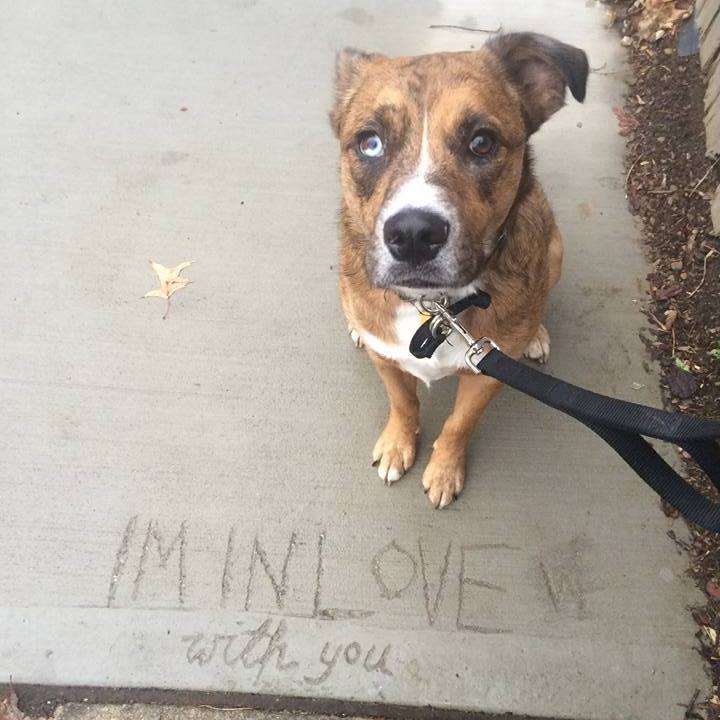 IM IN LOVE W
with you